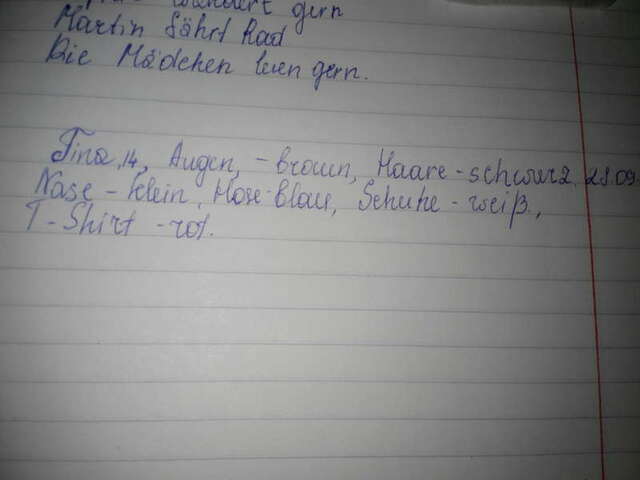 wandert gern
Martin fährt Rad
Die Mädchen lesen gern.
Tina, 14, Augen, - broun, Haare - schwarz, 28.09.
Nase - klein, Hose - blau, Schuhe - weiß,
T-Shirt - rot.